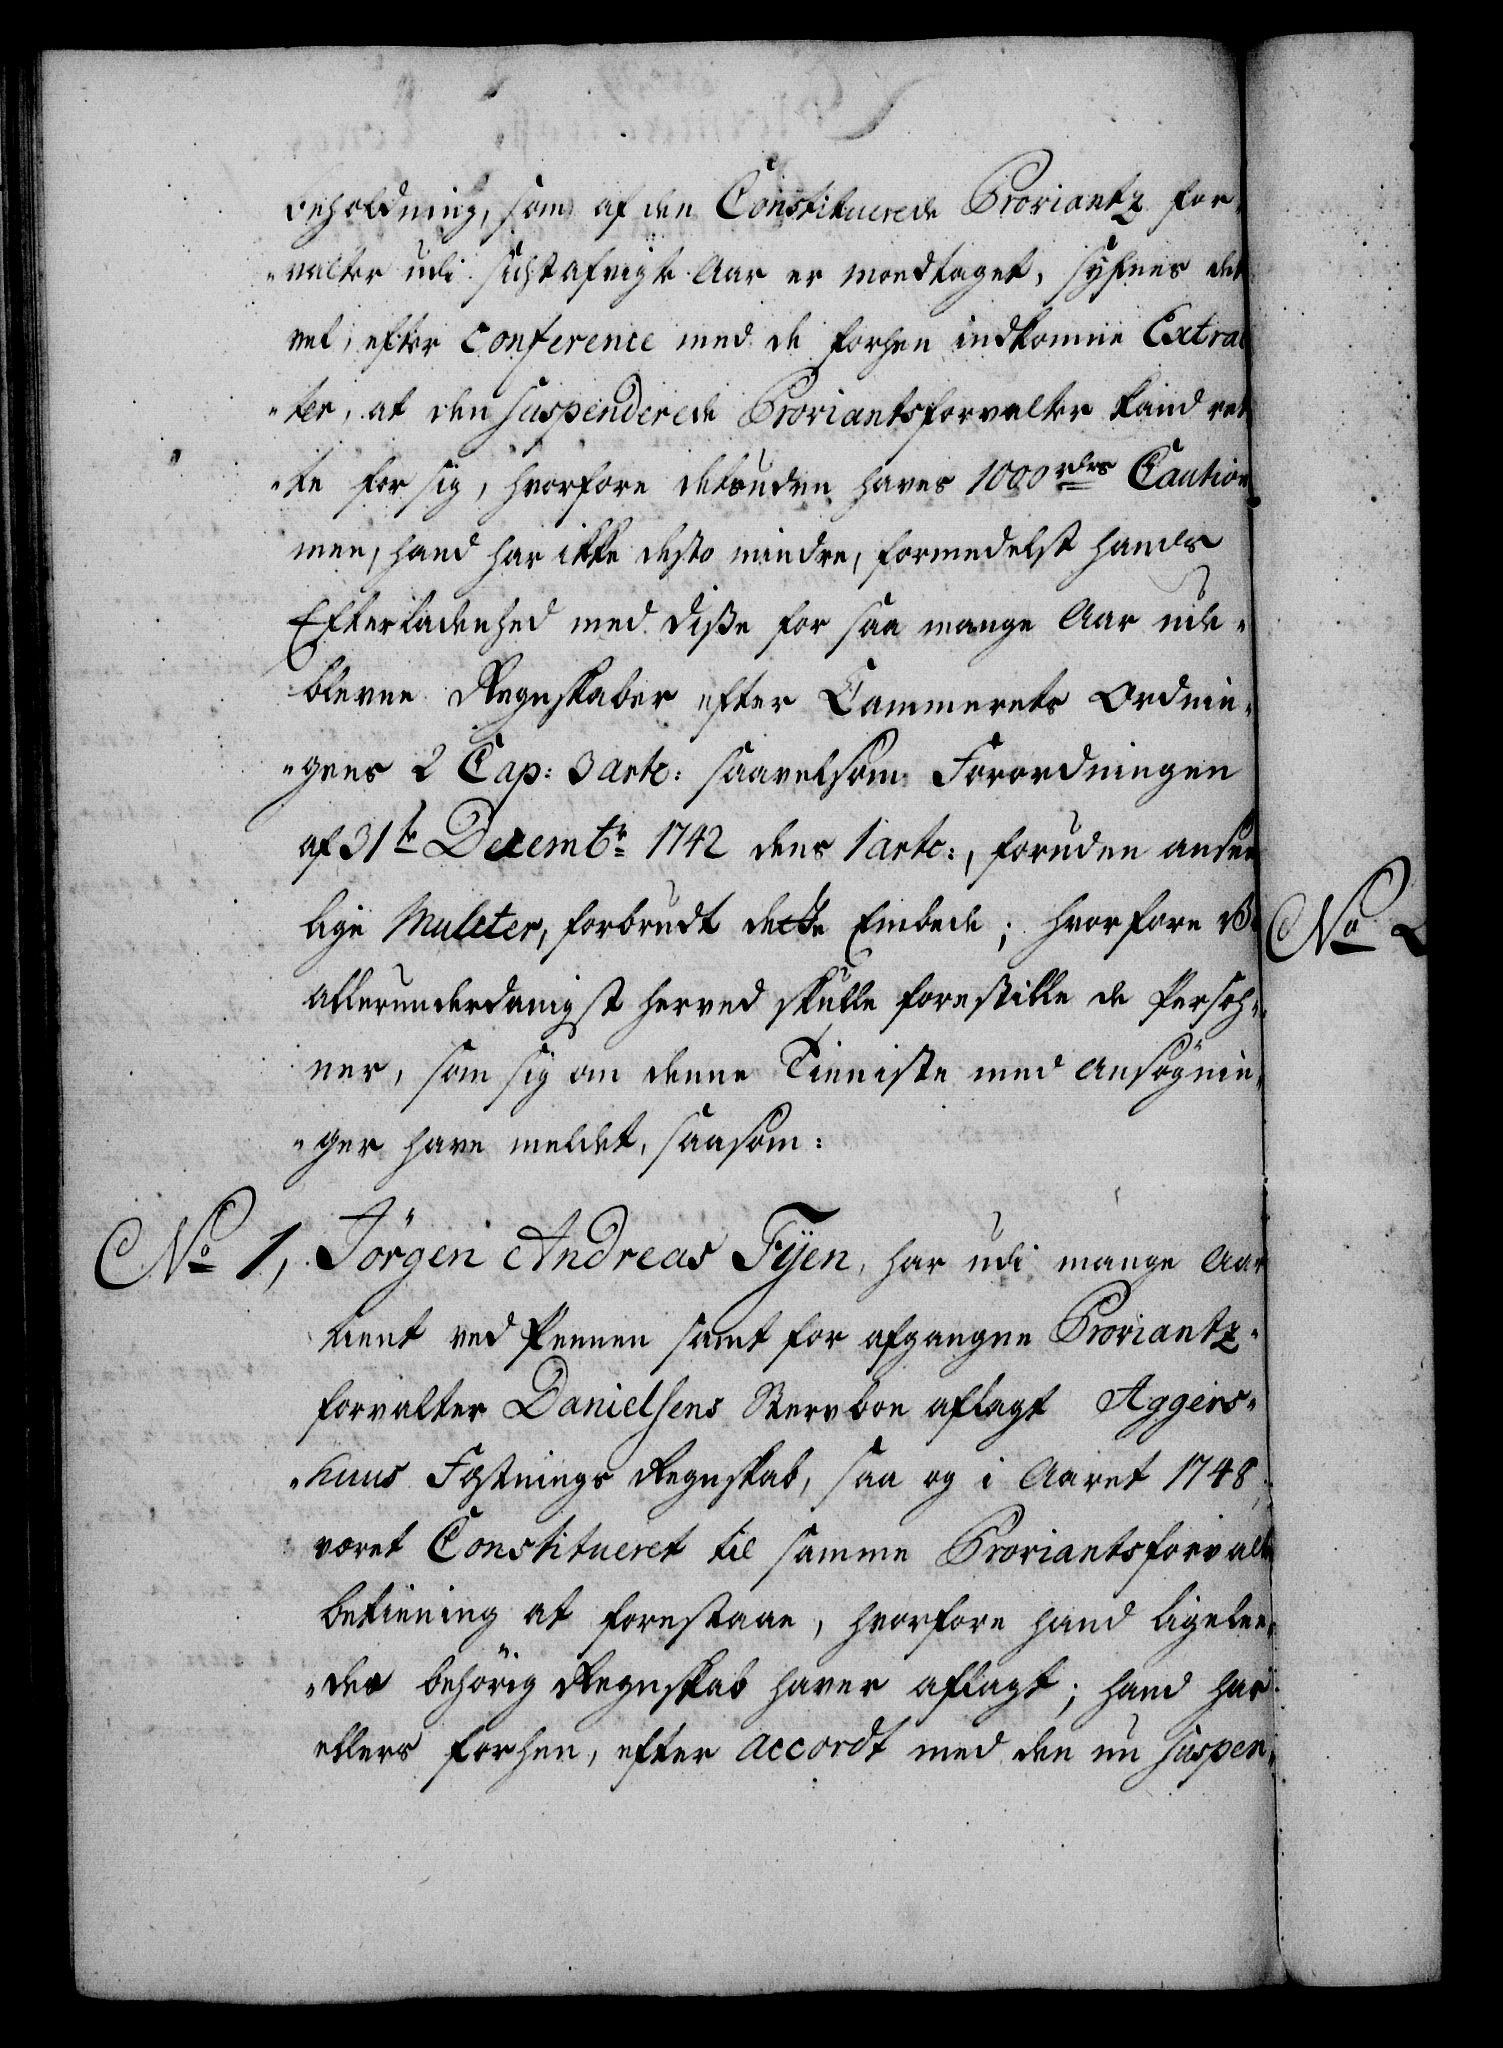 beholdning, som af den Constituerede Proviantz for-
-valter udi sidstafvigte Aar er modtaget, synes det
vel, efter Conference med de forhen indkomne Extrac
-ter, at den Suspenderede Proviantsforvalter kand ret
-te for sig, hvorfore desuden haves 1000 rdrs Caution
men, hand har ikke desto mindre, formedelst hands
Efterladenhed med disse for saa mange Aar ude-
blevne Regnskaber efter Cammerets Ordnin-
-gens 2 Cap: 3 artc: saavelsom Forordningen
af 31te Decembr 1742 dens 1 artc:, foruden anseen
lige Mulcter, forbrudt dette Embede; hvorfore Vi
allerunderdanigst herved skulle forestille de Persoh-
ner, som sig om denne Tienniste med Ansøgnin-
-ger have meldet, saasom:
No 1, Jörgen Andreas Fyen, har udi mange Aar
tient ved Pennen samt for afgangne Proviantz-
forvalter Danielsens Stervboe aflagt Aggers-
-huus Festnings Regnskab, saa og i Aaret 1748,
været Constitueret til samme Proviantsforvalter
betiening at forestaae, hvorfore hand ligelee-
-des behörig Regnskab haver aflagt; hand har
ellers forhen, efter accordt med den nu Suspen-
No 2